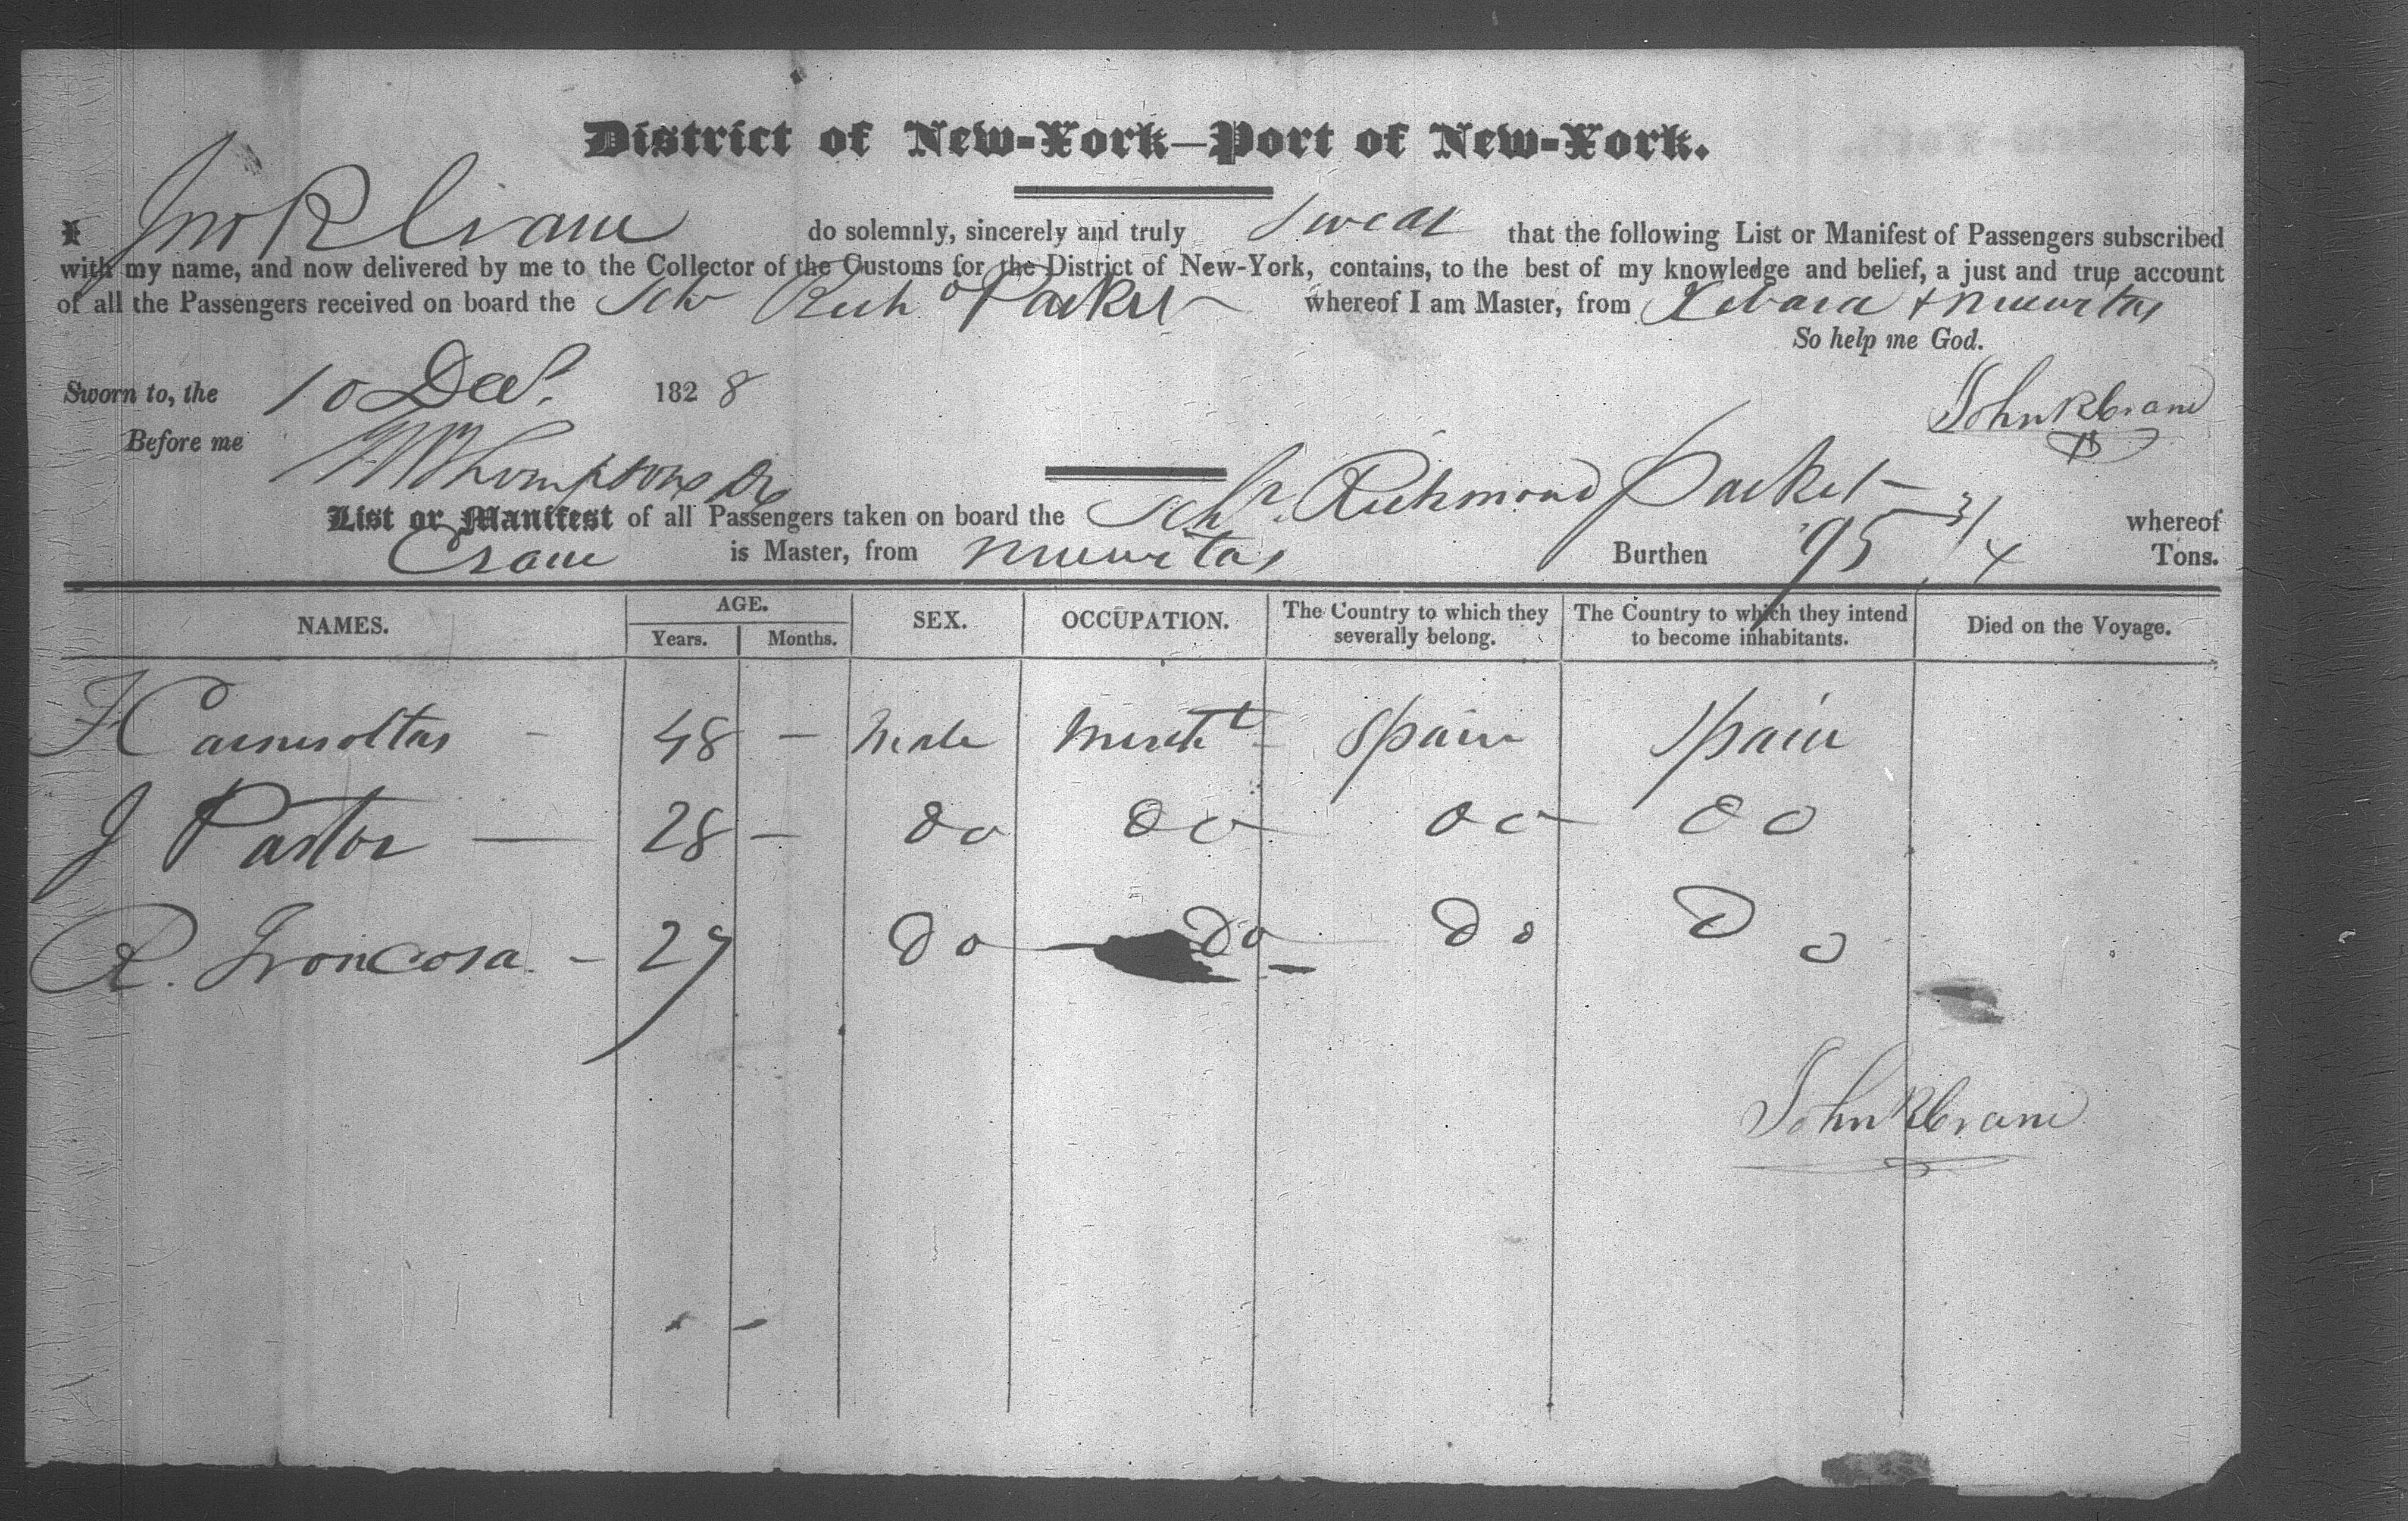 District of New-York—Port of New-York.
I Jno R Crane do solemnly, sincerely and truly swear that the following List or Manifest of Passengers subscribed
with my name, and now delivered by me to the Collector of the Customs for the District of New-York, contains, to the best of my knowledge and belief, a just and true account
of all the Passengers received on board the Sch Rich d Packet whereof I am Master, from Xebara + Nuevitas
So help me God.
Sworn to, the 10 Dec. 1828
John R Crane
Before me Thompson
List or Manifest of all Passengers taken on board the Schr. Richmond Packet whereof
Crane is Master, from Nuevitas Burthen 95 Tons.
NAMES. AGE. Years. Months. SEX. OCCUPATION. The Country to which they severally belong. The Country to which they intend to become inhabitants. Died on the Voyage.
48 - Male Mercht Spain Spain
J Pastor — 28 - do do do do
R. Troncosa - 27 do do do do
John R Crane